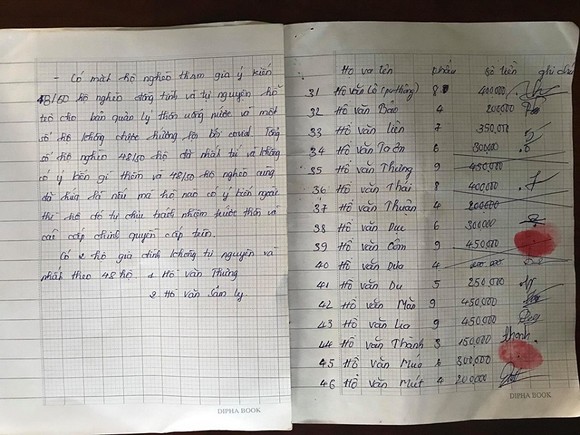 - Có mặt hộ nghèo tham gia ý kiến
48/50 hộ nghèo đồng tình và tự nguyện hỗ
trợ cho ban quản lý thôn uống nước và một
số hộ không được hưởng lợi bởi covid. Tổng
số hộ nghèo 48/50 hộ đã nhất trí và không
có ý kiến gì thêm và 48/50 hộ nghèo cũng
đã hứa là nếu mà hộ nào có ý kiến ngoài
thì hộ đó tự chịu trách nhiệm trước thôn và
các cấp chính quyền cấp trên.
Có 2 hộ gia đình không tự nguyện và
nhất theo 48 hộ 1 Hồ Văn Thưởng
2 Hồ Văn Sâm ly
DIPHA BOOK
Họ và tên khẩu số tiền ghi chú
31 Hồ Văn Lả 8 400,000
32 Hồ Văn Bảo 4 200,000
33 Hồ Văn Liên 7 350,000
34 Hồ Văn Ta ơn 6 300,000
35 Hồ Văn Thưởng 9 450,000
36 Hồ Văn Thái 8 400,000
37 Hồ Văn Thuân 4 200,000
38 Hồ Văn Dục 6 300,000
39 Hồ Văn Côm 9 450,000
40 Hồ Văn Dưa 4
41 Hồ Văn Du 5 250,000
42 Hồ Văn Mão 9 450,000
43 Hồ Văn Lia 9 450,000
44 Hồ Văn Thành 3 150,000 Thành
45 Hồ Văn 4 300,000
46 Hồ Văn Mút 4 200,000
DIPHA BOOK